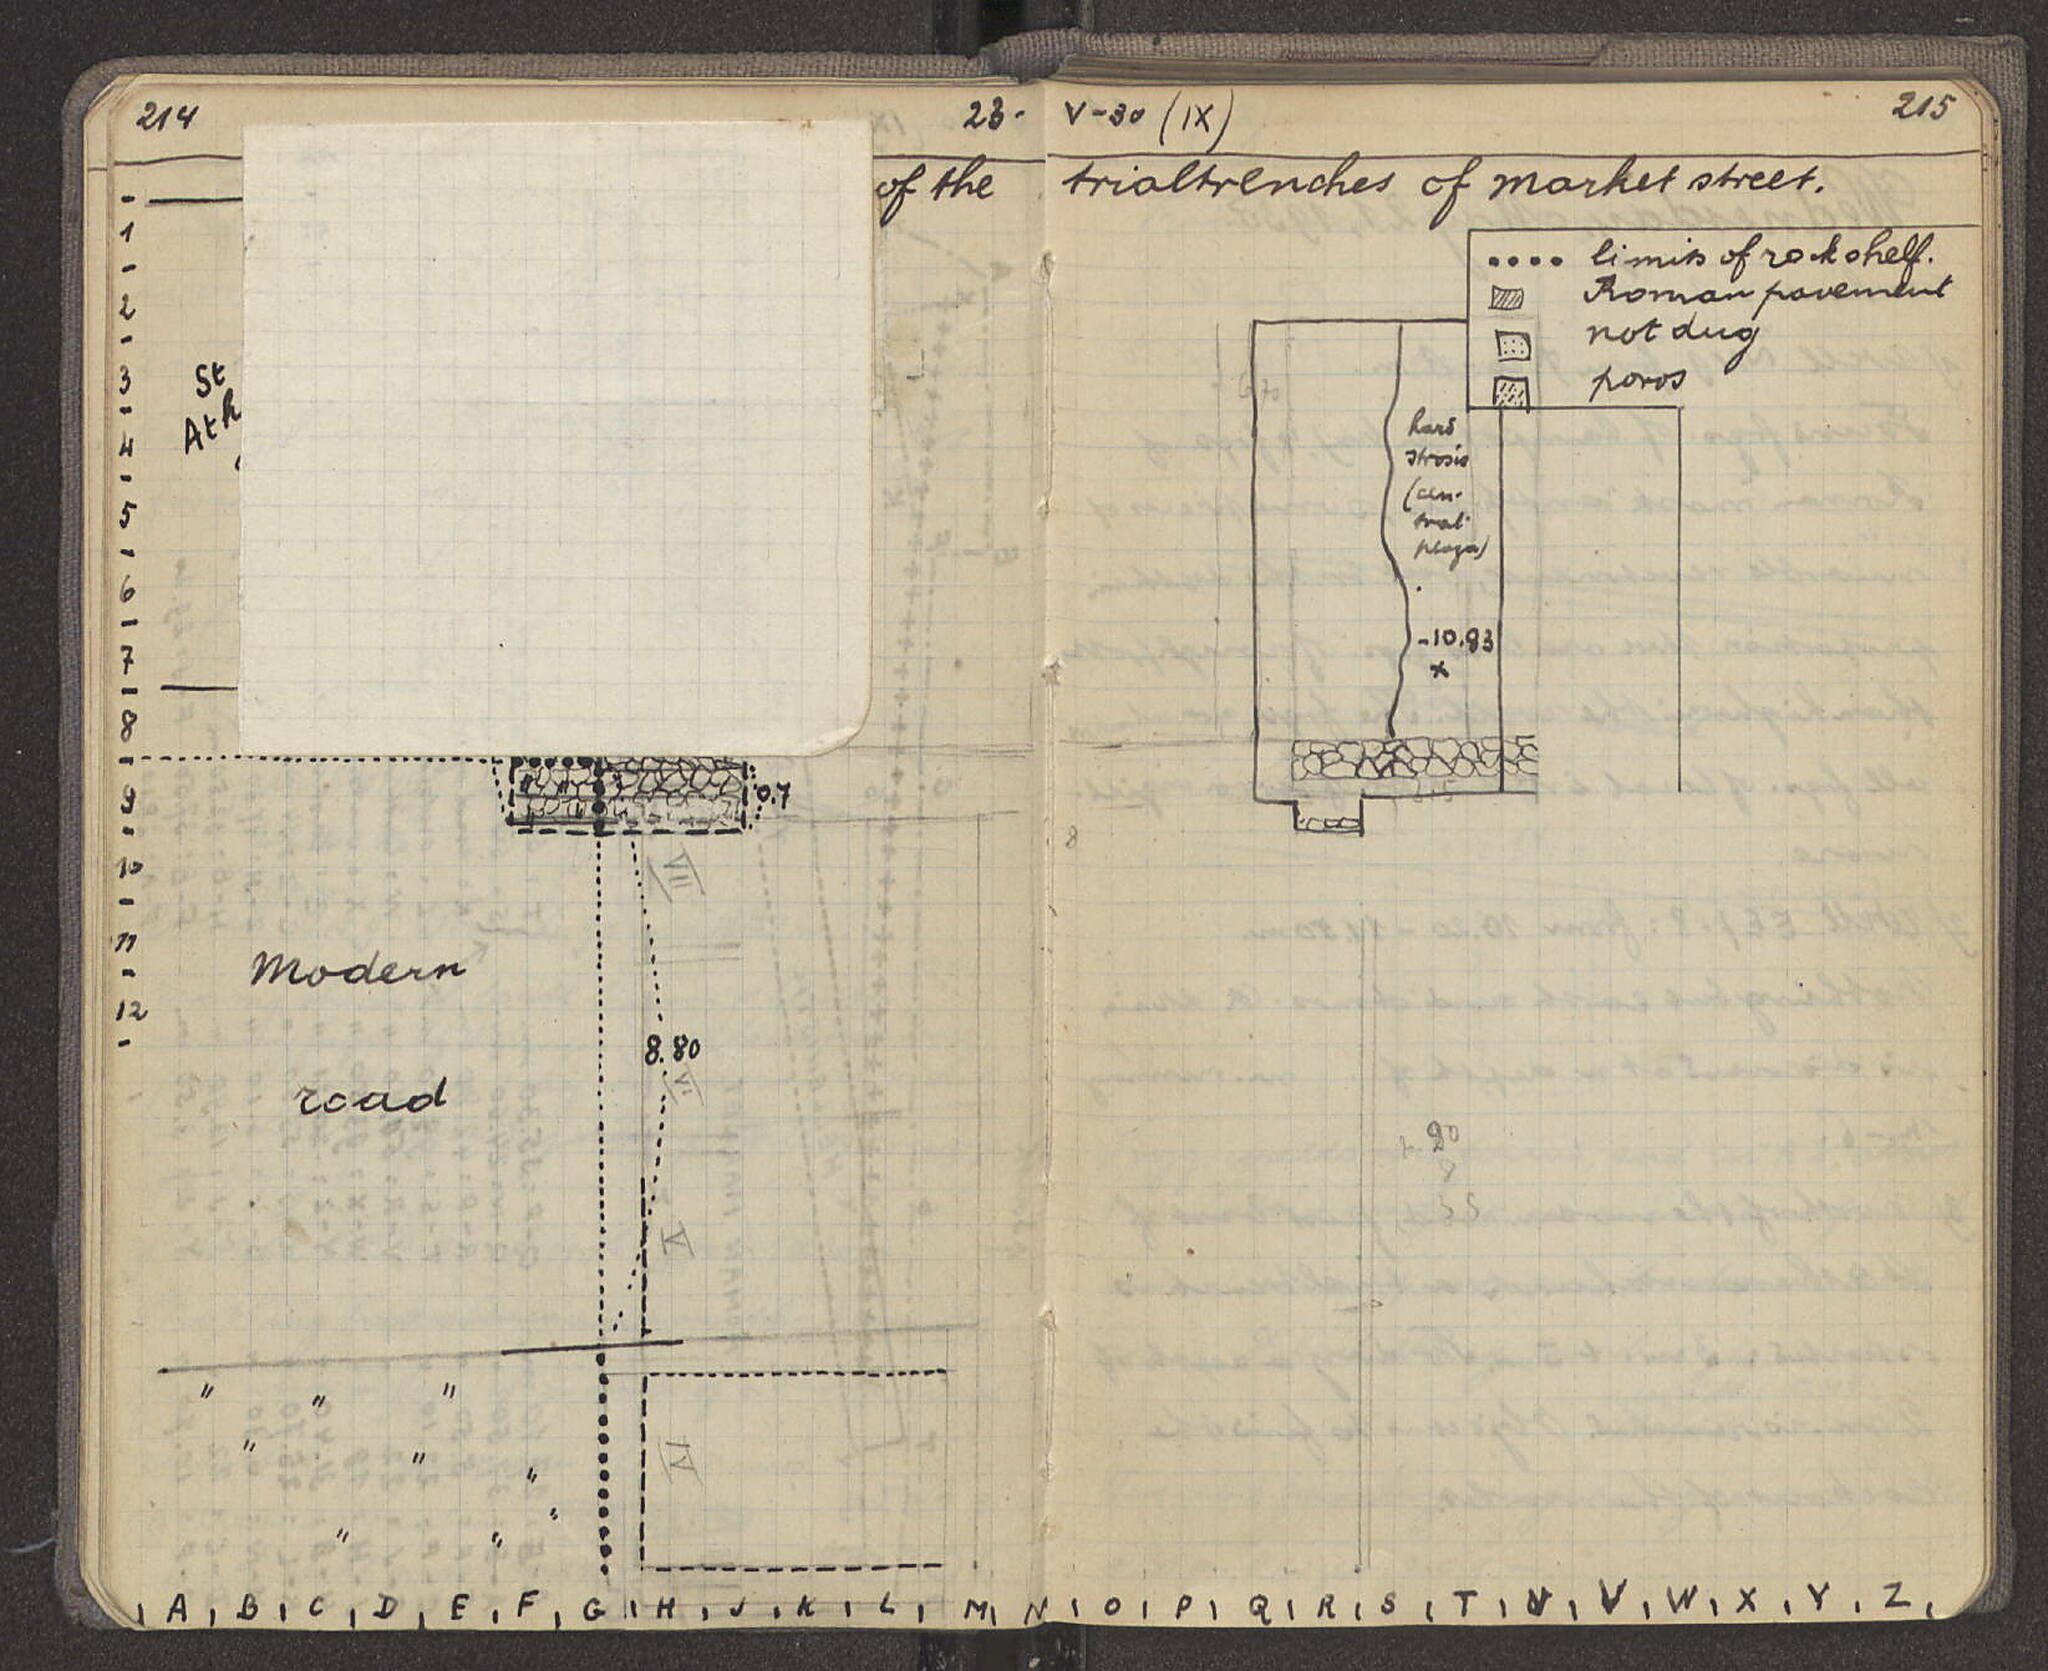 214
23-
V-30 (IX)
215
of the trialtrenches of market street.
.... limits of rock shelf.
Roman pavement
not dug
poros
1
2
3
4
5
6
7
8
9
10
11
12
St
Ath
hard
strosis
(cen-
tral
plaza)
-10.83
x
0.7
VIII
Modern
8.80
VI
road
V
" " "
" " "
"
" "
IV
8
A B C D E F G H J K L M N O P Q R S T U V W X Y Z